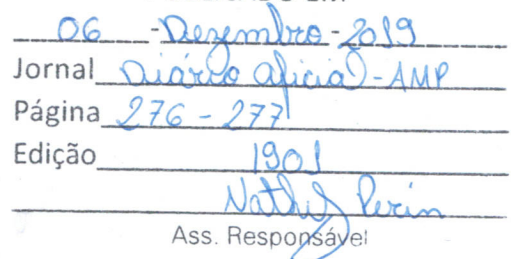 06 - Dezembro - 2019
Jornal Diário Oficial - AMP
Página 276 - 277
Edição 1901
Perin
Ass. Responsável